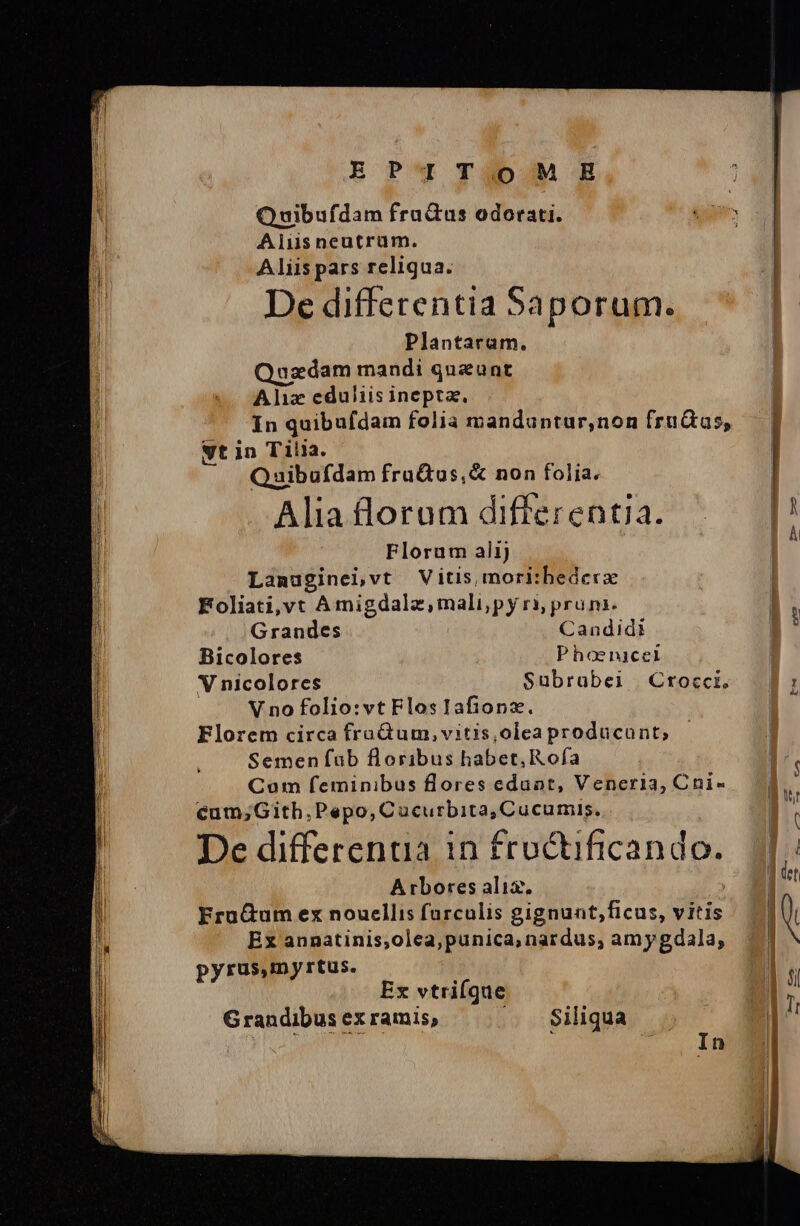 EPITOME
Quibuſdam fructus odorati.
Aliis neutrum.
Aliis pars reliqua.
De differentia Saporum.
Plantarum.
Quædam mandi queunt
Aliæ eduliis ineptæ.
In quibuſdam folia manduntur, non fructus,
vt in Tilia.
Quibuſdam fructus, & non folia.
Alia florum differentia.
Florum alij
Lanuginei, vt Vitis, mori: hederæ
Foliati, vt Amigdalæ, mali, pyri, pruni.
Grandes Candidi
Bicolores Phœnicei
Vnicolores Subrubei Crocei.
Vno folio: vt Flos Iaſionæ.
Florem circa fructum, vitis, olea producunt,
Semen ſub floribus habet, Roſa
Cum ſeminibus flores edunt, Veneria, Cni-
cum; Gith, Pepo, Cucurbita, Cucumis.
De differentia in fructificando.
Arbores aliæ.
Fructum ex nouellis ſurculis gignunt, ficus, vitis
Ex annatinis, olea, punica, nardus, amygdala,
pyrus, myrtus.
Ex vtriſque
Grandibus ex ramis, Siliqua
In